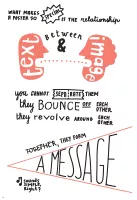 WHAT MAKES
A POSTER SO Special
IS THE relationship
Between
text & image
YOU CANNOT SEPERATE THEM
they BOUNCE OFF EACH OTHER.
they revolve AROUND EACH OTHER.
TOGETHER, THEY FORM
A MESSAGE
SOUNDS
SIMPLE,
Right?